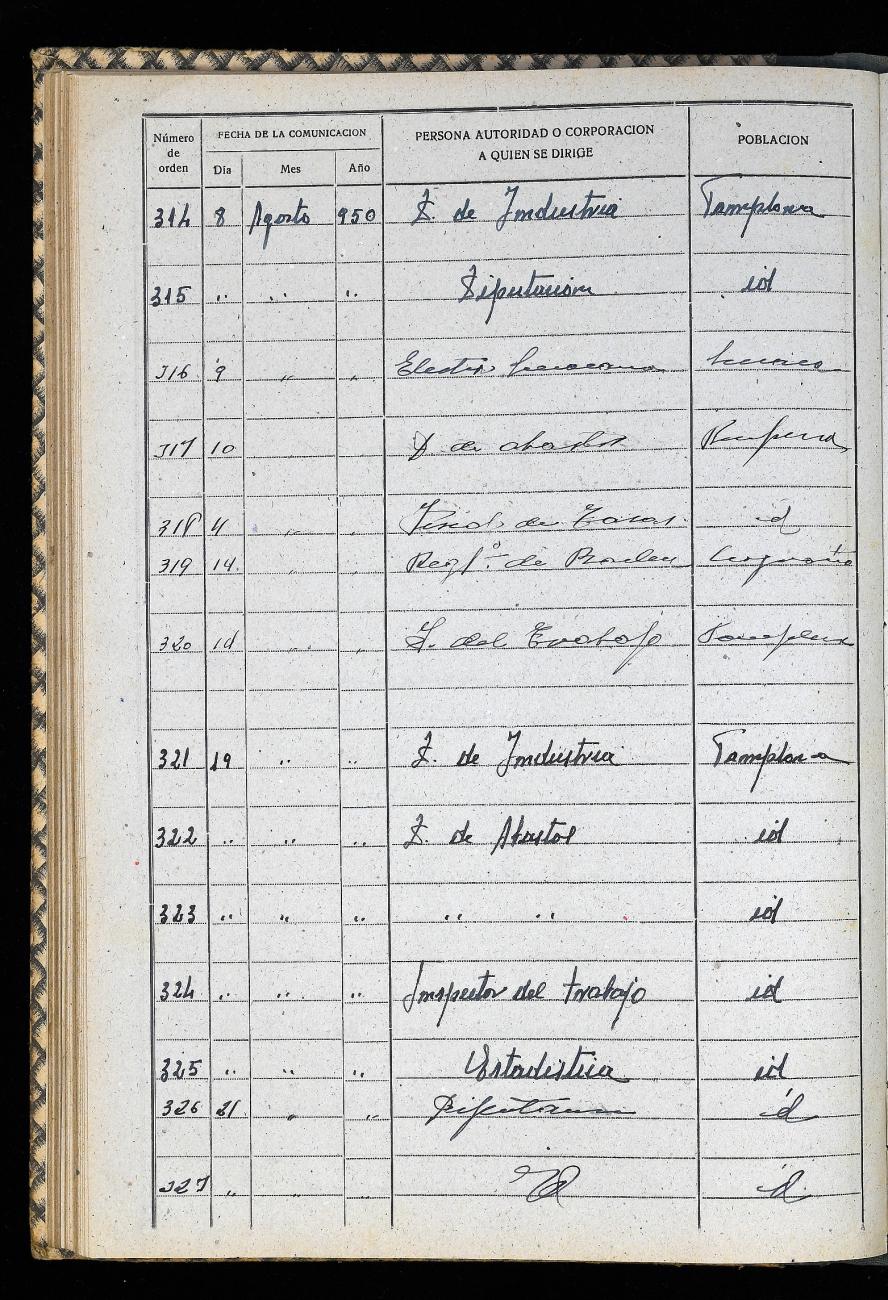 Número de orden FECHA DE LA COMUNICACION PERSONA AUTORIDAD O CORPORACION A QUIEN SE DIRIGE POBLACION
Día Mes Año
314 8 Agosto 950 D. de Industria Pamplona
315 " " " Diputacion id
316 9 " "
317 10 D de abastos
318 " " Fiscal de Tasas id
319 14 " " de
320 14 " " I. del Trabajo Pamplona
321 19 " " D. de Industria Pamplona
322 " " " D. de Abastos id
323 " " " " " id
324 " " " Inspector del trabajo id
325 " " " Estadistica id
326 21 " " Diputacion id
327 " " " Id id